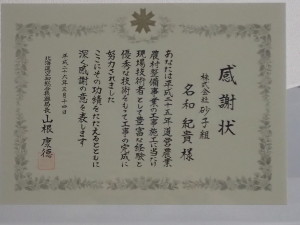 感謝状
株式会社 砂子組
名和 紀貴 様
あなたは平成二十五年道営農業
農村整備事業の工事施工に当たり
現場技術者として豊富な経験と
優秀な技術をもって工事の完成に
努力されました
ここにその功績をたたえるとともに
深く感謝の意を表します
平成二十六年三月十四日
山根 康徳